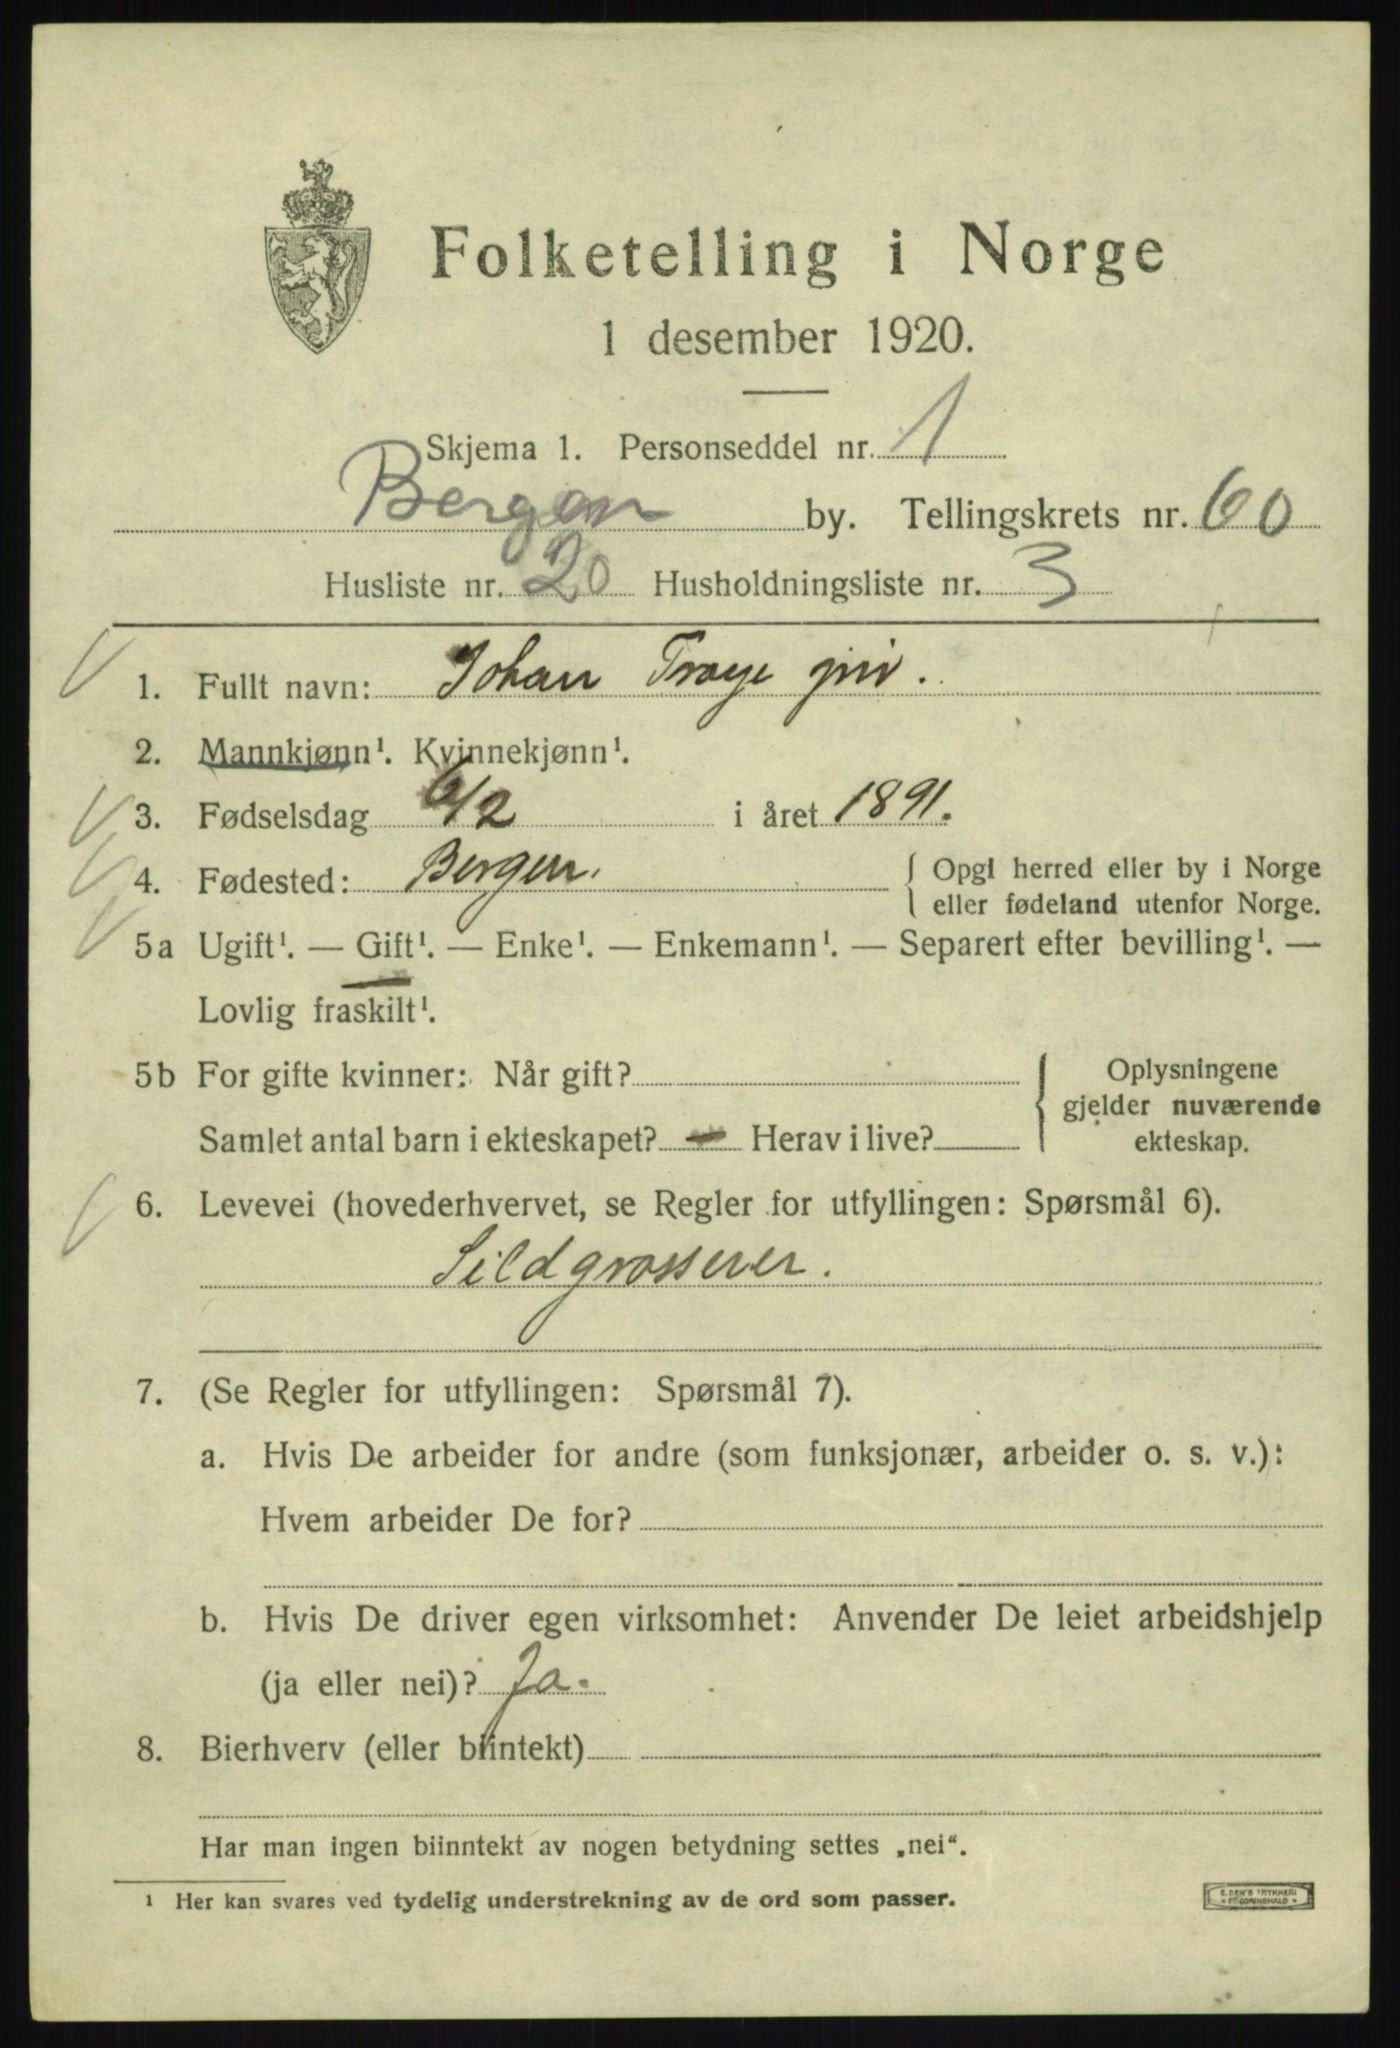 Folketelling i Norge
1 desember 1920.
Skjema 1. Personseddel nr. 1
Bergen by. Tellingskrets nr. 60
Husliste nr. 20 Husholdningsliste nr. 3
1. Fullt navn: Johan Troye jnr.
2. Mannkjønn¹. Kvinnekjønn¹.
3. Fødselsdag 6/2 i året 1891.
4. Fødested: Bergen. { Opgi herred eller by i Norge
eller fødeland utenfor Norge.
5a Ugift¹. — Gift¹. — Enke¹. — Enkemann¹. — Separert efter bevilling¹. —
Lovlig fraskilt¹.
5b For gifte kvinner: Når gift? { Oplysningene
gjelder nuværende
Samlet antal barn i ekteskapet? — Herav i live? ekteskap.
6. Levevei (hovederhvervet, se Regler for utfyllingen: Spørsmål 6).
Sildgrosserer.
7. (Se Regler for utfyllingen: Spørsmål 7).
a. Hvis De arbeider for andre (som funksjonær, arbeider o. s. v.):
Hvem arbeider De for?
b. Hvis De driver egen virksomhet: Anvender De leiet arbeidshjelp
(ja eller nei)? Ja.
8. Bierhverv (eller biintekt)
Har man ingen biinntekt av nogen betydning settes „nei“.
¹ Her kan svares ved tydelig understrekning av de ord som passer.
E. SEM'S TRYKKERI
• FREDRIKSHALD •